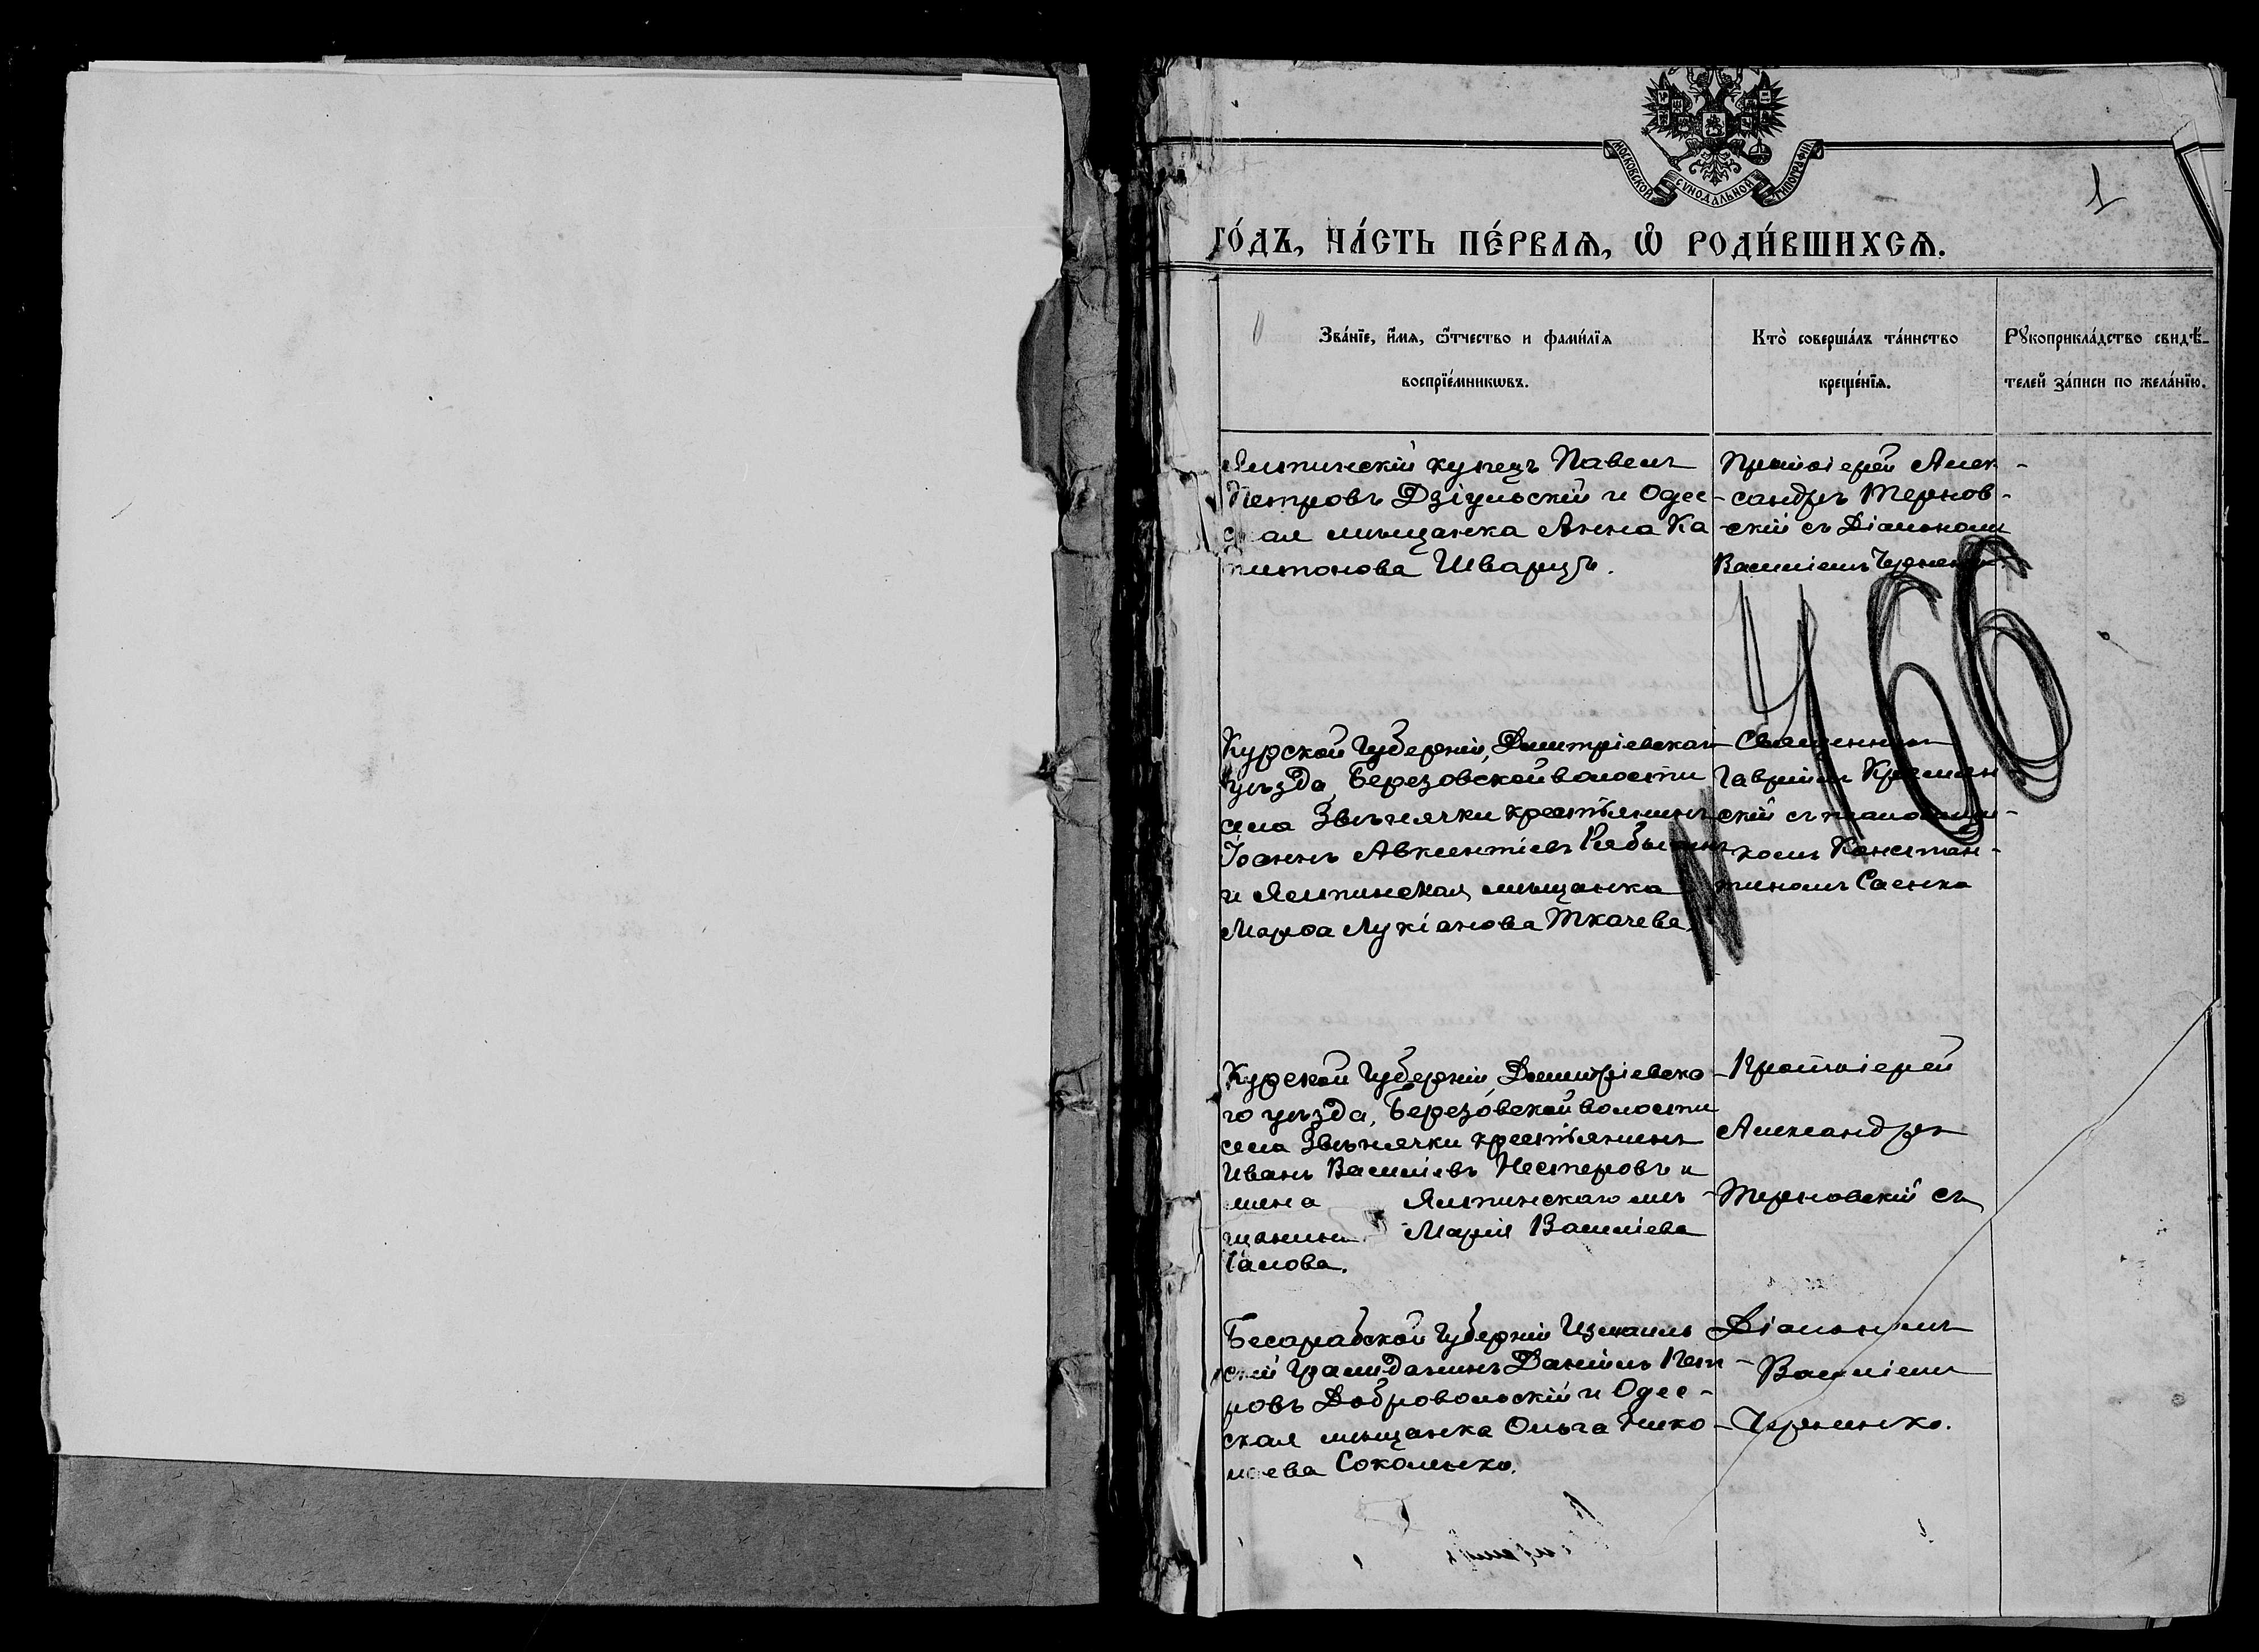 МОСКОВСКОЙ СУНОДАЛЬНОЙ ТИПОГРАФІИ
1
ГО́ДЪ, ЧА́СТЬ ПЕ́РВАѦ, Ѡ҆ РОДИ́ВШИХСѦ.
Зва́нїе, и҆́мѧ, ѻ҆́тчество и фами́лїѧ
воспрїе́мникѡвъ.
Кто̀ соверша́лъ та́инство
креще́нїѧ.
Рꙋкоприкла́дство свидѣ́-
телей за́писи по жела́нїю.
Ялтинскій купецъ Павелъ
Петровъ Дзіульскій и Одес-
ская мѣщанка Анна Ка
питонова Шварцъ.
Протоіерей Алек-
сандръ Тернов-
скій съ Діакономъ
Василіемъ
466
Курской Губерніи, Дмитріевскаго
уѣзда, Березовской волости
села Звѣнячки крестьянинъ
Іоаннъ Авксентіевъ
и Ялтинская мѣщанка
Марѳа Лукіанова Ткачева.
Священникъ
Гавріилъ
скій съ псаломщи-
комъ Констан-
тиномъ Саенко
Курской Губерніи, Дмитріевска-
го уѣзда, Березовской волости
села Звѣнячки крестьянинъ
Иванъ Василіевъ Нестеровъ и
жена Ялтинскаго мѣ-
щанина Марія Василіева
Галова.
Протоіерей
Александръ
Терновскій съ
Бесарабской Губерніи Измаиль
скій гражданинъ Даніилъ Пет-
ровъ Добровольскій и Одес-
ская мѣщанка Ольга Нико-
лаева Соколенко.
Діакономъ
Василіемъ
Черненко.